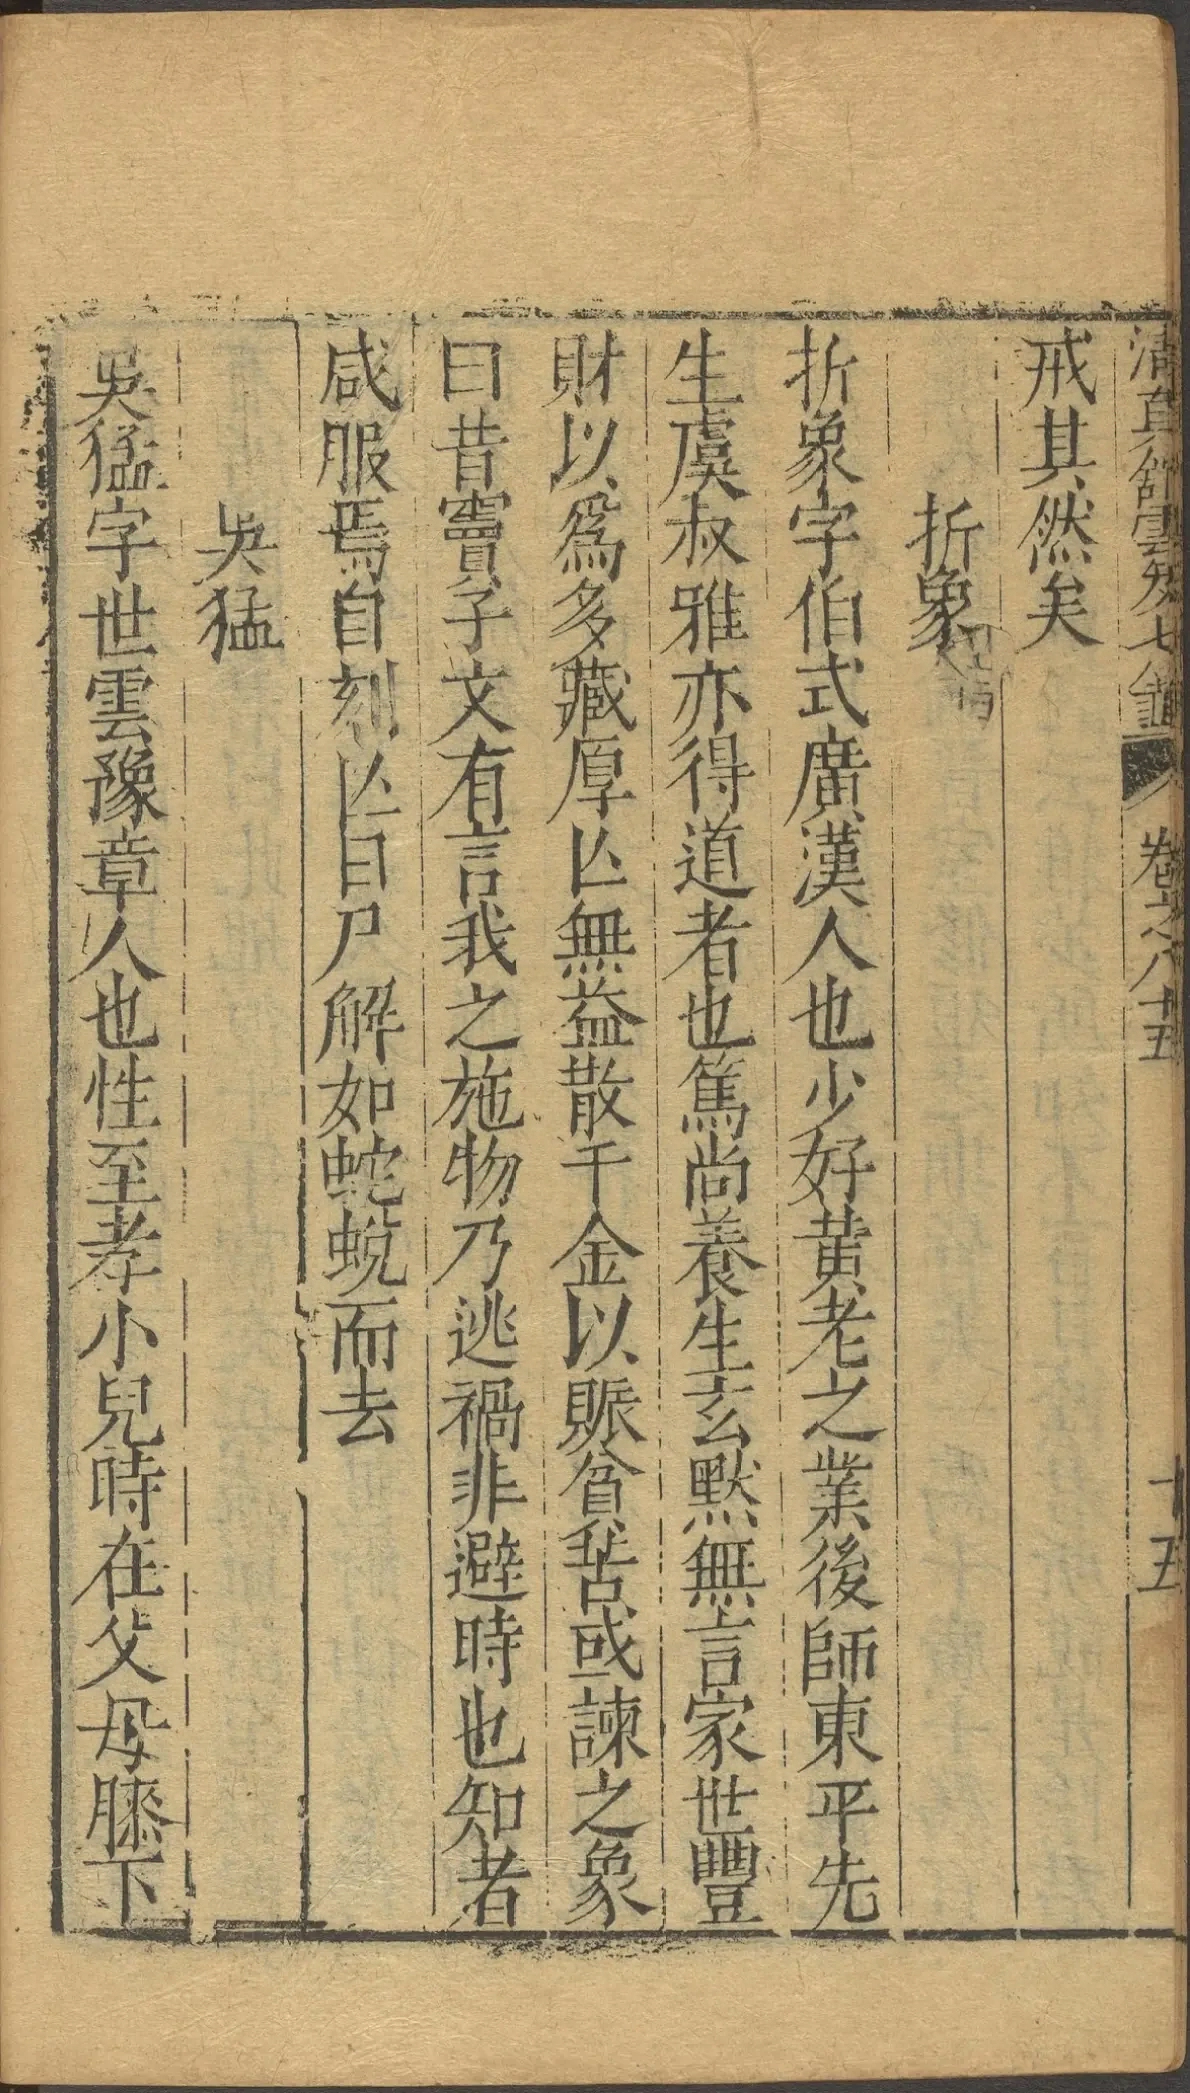 清眞館雲笈七籤 卷之八十五 十五
戒其然矣
折象
折象字伯式廣漢人也少好黃老之業後師東平先
生虞叔雅亦得道者也篤尚養生玄默無言家世豐
財以爲多藏厚亾無益散千金以賑貧苦或諫之象
曰昔竇子文有言我之施物乃逃禍非避時也知者
咸服焉自刻亾日尸解如蛇蛻而去
吳猛
吳猛字世雲豫章人也性至孝小兒時在父母膝下